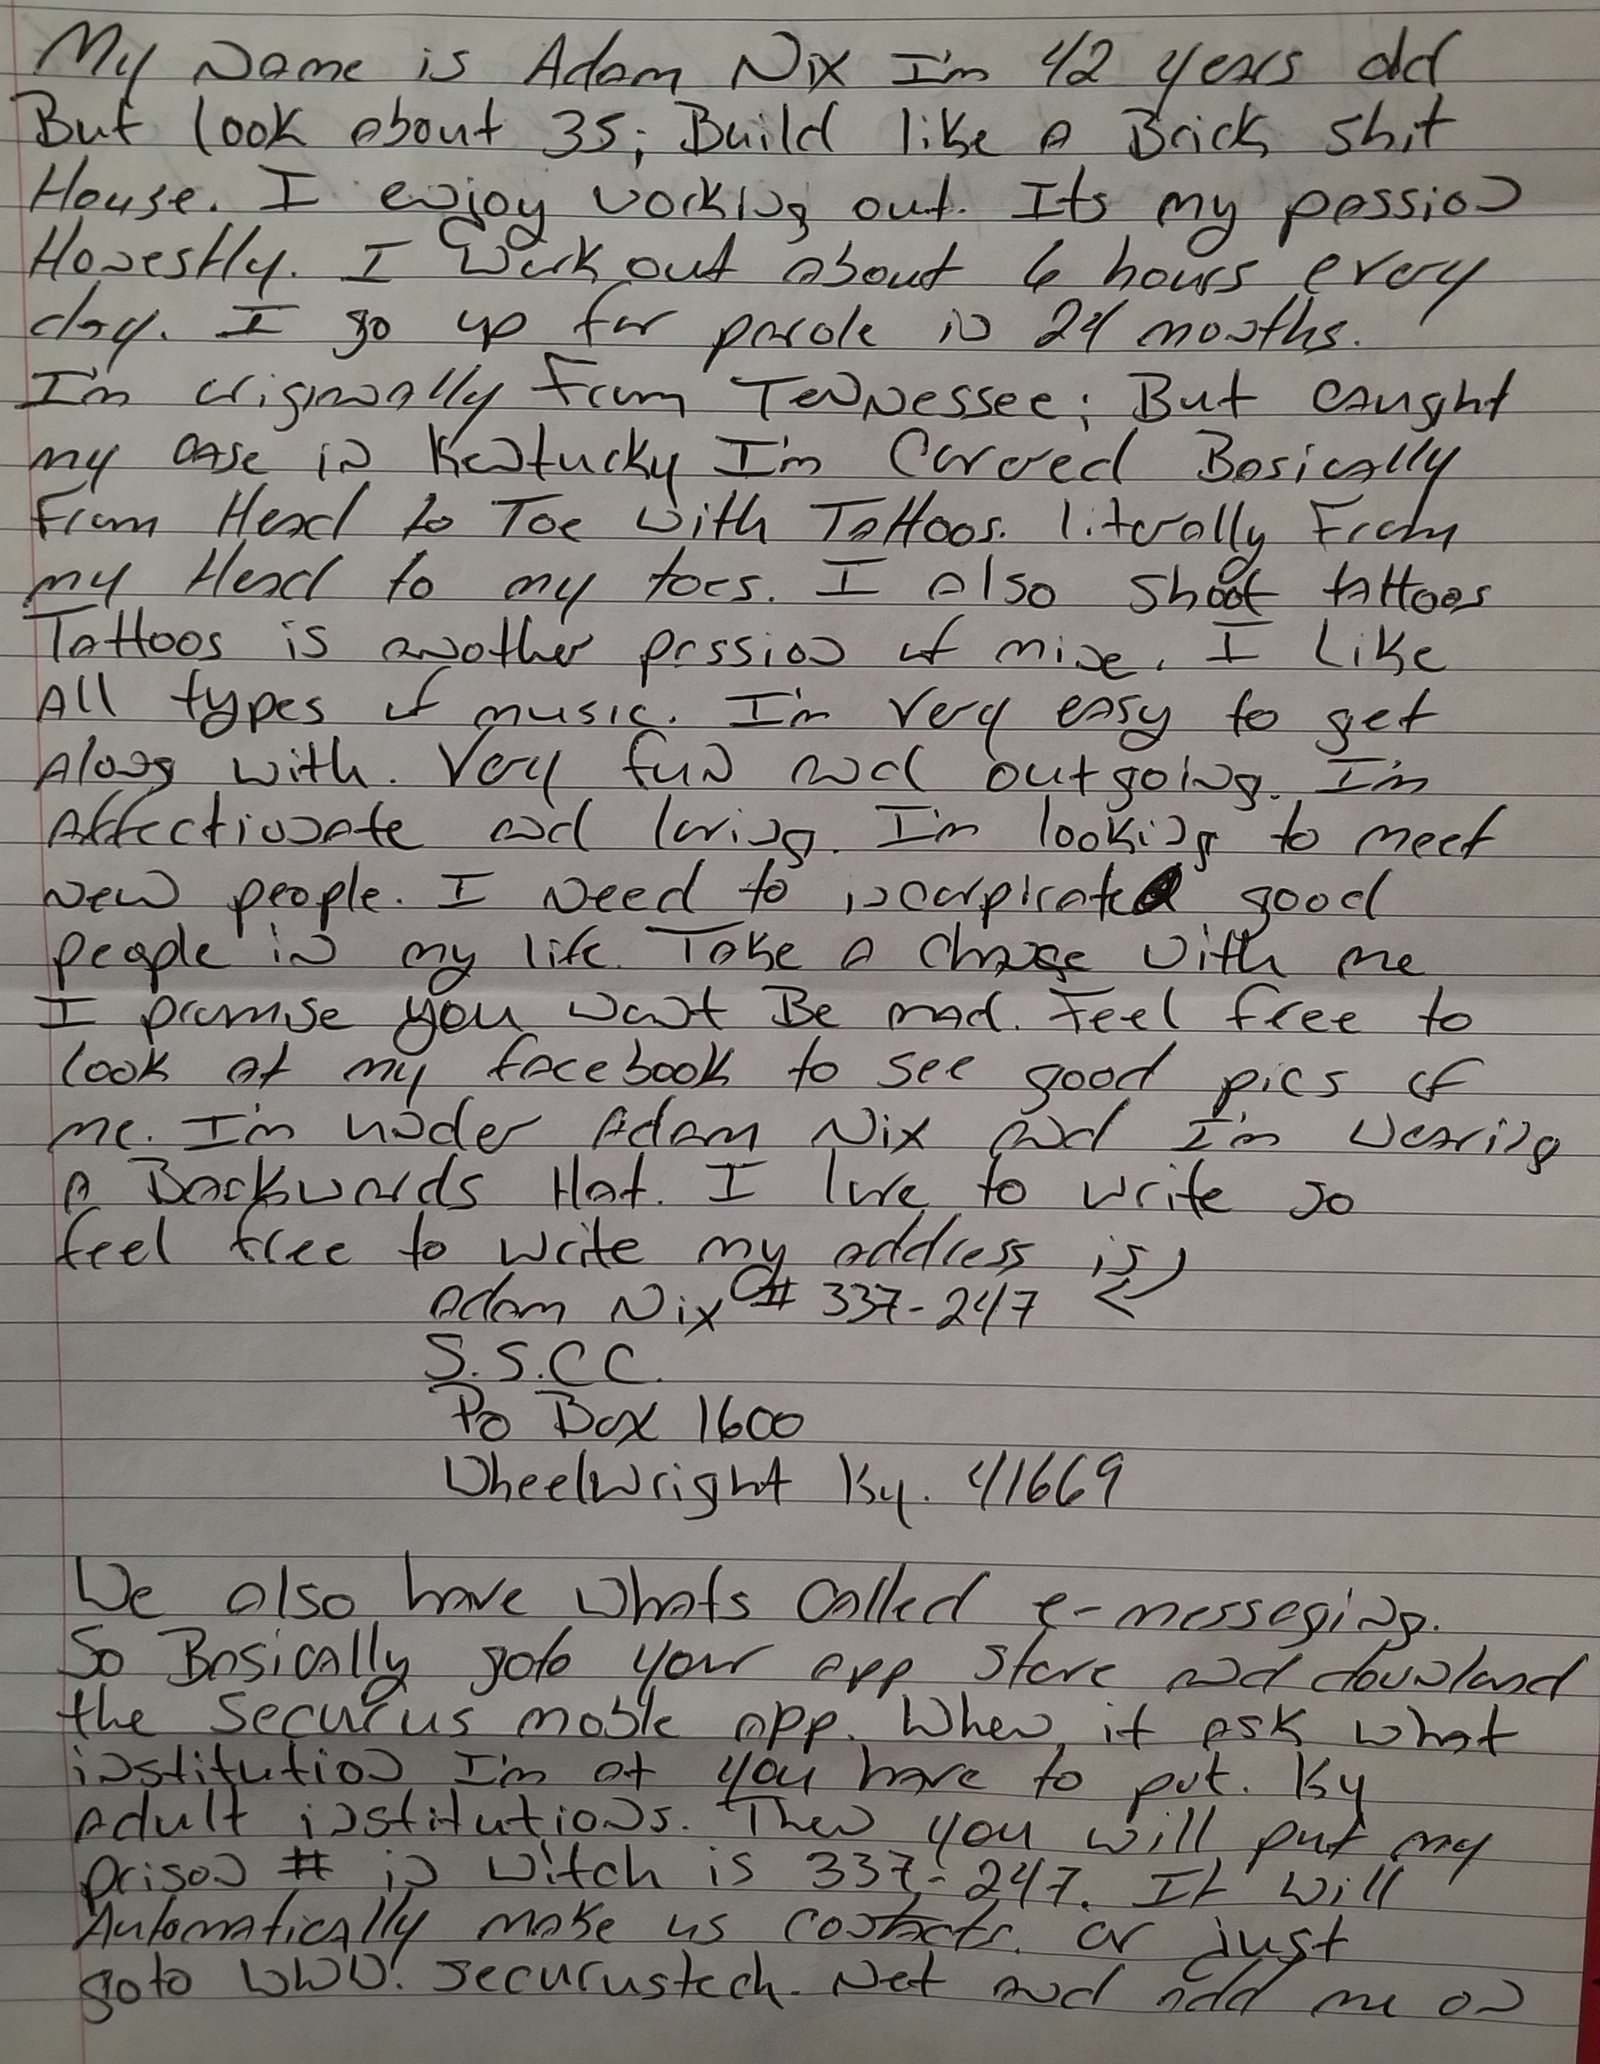 My Name is Adam Nix I'm 42 years old
But look about 35; Build like a Brick shit
House. I enjoy working out. Its my passion
Honestly. I Work out about 6 hours every
day. I go up for parole in 24 months.
I'm originally From Tennessee; But caught
my case in Kentucky I'm Covered Basically
From Head to Toe with Tattoos. literally From
my Head to my toes. I also shoot tattoos
Tattoos is another passion of mine. I Like
All types of music. I'm very easy to get
Along with. Very fun and outgoing. I'm
Affectionate and loving. I'm looking to meet
New people. I Need to incorpirate good
people in my life. Take a chance with me
I promise you won't Be mad. Feel free to
look at my facebook to see good pics of
me. I'm under Adam Nix and I'm wearing
a Backwards Hat. I love to write so
feel free to write my address is
Adam Nix # 337-247
S.S.C.C.
Po Box 1600
WheelWright Ky. 41669
We also have whats called e-messaging.
So Basically goto your app store and downland
the Securus moble app. When it ask what
institution I'm at you have to put. Ky
Adult institutions. Then you will put my
prison # in witch is 337-247. It will
Automatically make us contacts. or just
goto WWW. securustech. Net and add me on